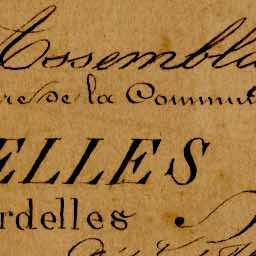 Assembla
re de la Commu
ELLES
rdelles